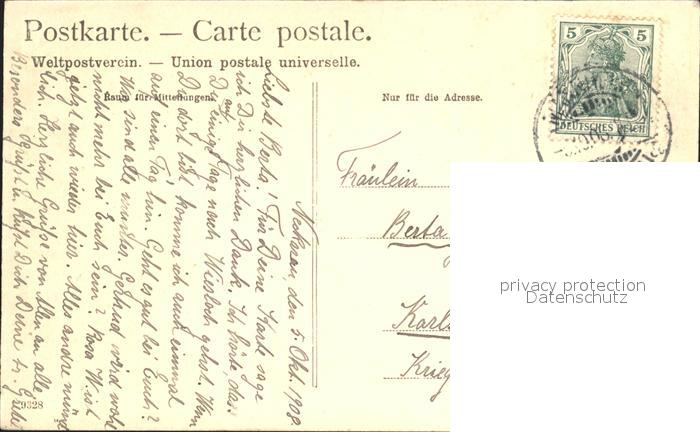 Postkarte. — Carte postale.
Weltpostverein. — Union postale universelle.
Raum für Mitteilungen.
Nur für die Adresse.
5 5
DEUTSCHES REICH
Neckarau, den 5. Okt. 1908.
Liebste Berta! Für Deine Karte sage
ich Dir herzlichen Dank. Ich hörte, dass
Du auf einige Tage nach Wiesloch gehst. Wenn
Du dort bist, komme ich auch einmal
auf einen Tag hin. Geht es gut bei Euch?
Wir sind alle munter. Gertrud wird wohl
nicht mehr bei Euch sein? Rosa Wist
jetzt auch wieder hier. Alles andre münd
lich. Herzliche Grüße von Allen an alle
Besonders grüßt u. küßt Dich Deine tr.
Fräulein
Berta
Karls
Krieg
privacy protection
Datenschutz